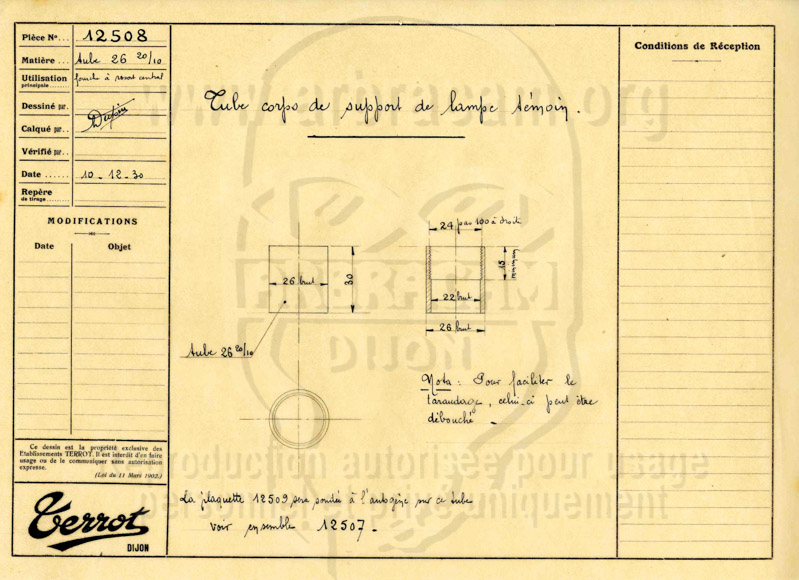 Pièce No... 12508
Matière... tube 26 20/10
Utilisation principale... fourche à ressort central
Dessiné par.
Calqué par..
Vérifié par..
Date ...... 10-12-30
Repère
de tirage........
MODIFICATIONS
Date Objet
Ce dessin est la propriété exclusive des
Etablissements TERROT. Il est interdit d'en faire
usage ou de le communiquer sans autorisation
expresse.
(Loi du 11 Mars 1902.)
Terrot
DIJON
Tube corps de support de lampe témoin.
26 brut
30
tube 26 20/10
24 pas 100 à droite
15
minimum
22 brut
26 brut
Nota : Pour faciliter le
taraudage, celui-ci peut être
débouché -
La plaquette 12509 sera soudée à l'autogène sur ce tube
voir ensemble 12507-
Conditions de Réception
www.abracam.org
DIJON
production autorisée pour usage
uniquement